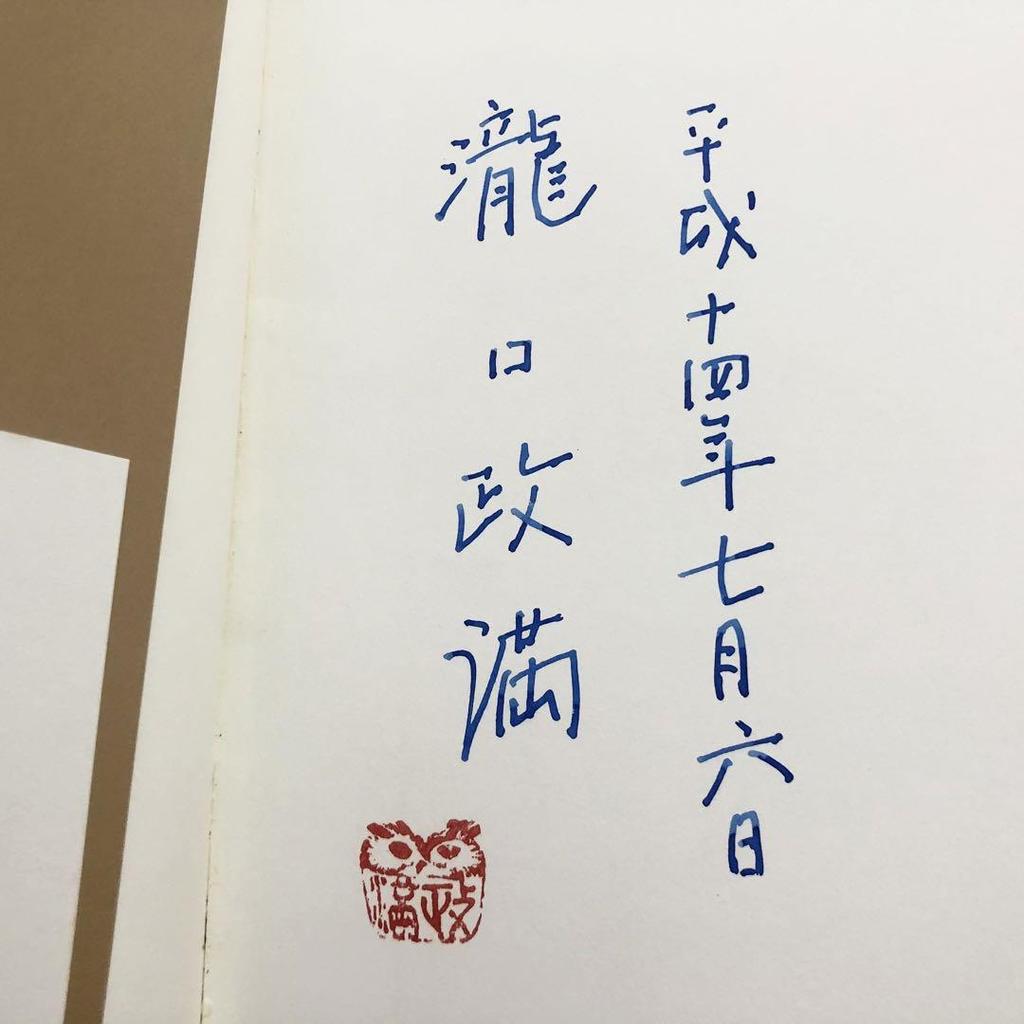 平成十四年七月六日
瀧口政満
政満